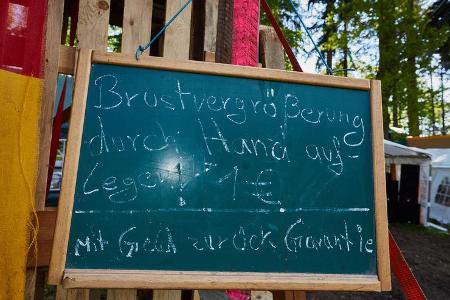 Brustvergrößerung
durch Hand auf-
Legen! 1€
mit Geld zurück Garantie